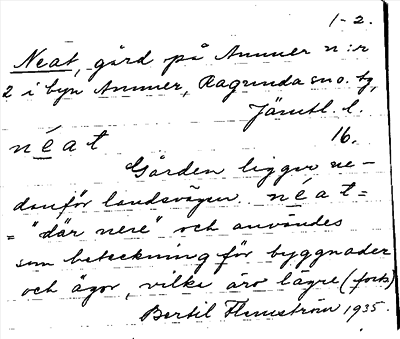 1-2.
Neat, gård på Ammer n:r
2 i byn Ammer, Ragunda sn o. tg,
Jämtl. l.
néat 16.
Gården ligger ne-
danför landsvägen. néat =
= "där nere" och användes
som beteckning för byggnader
och ägor, vilka äro lägre (forts)
Bertil Flemström 1935.